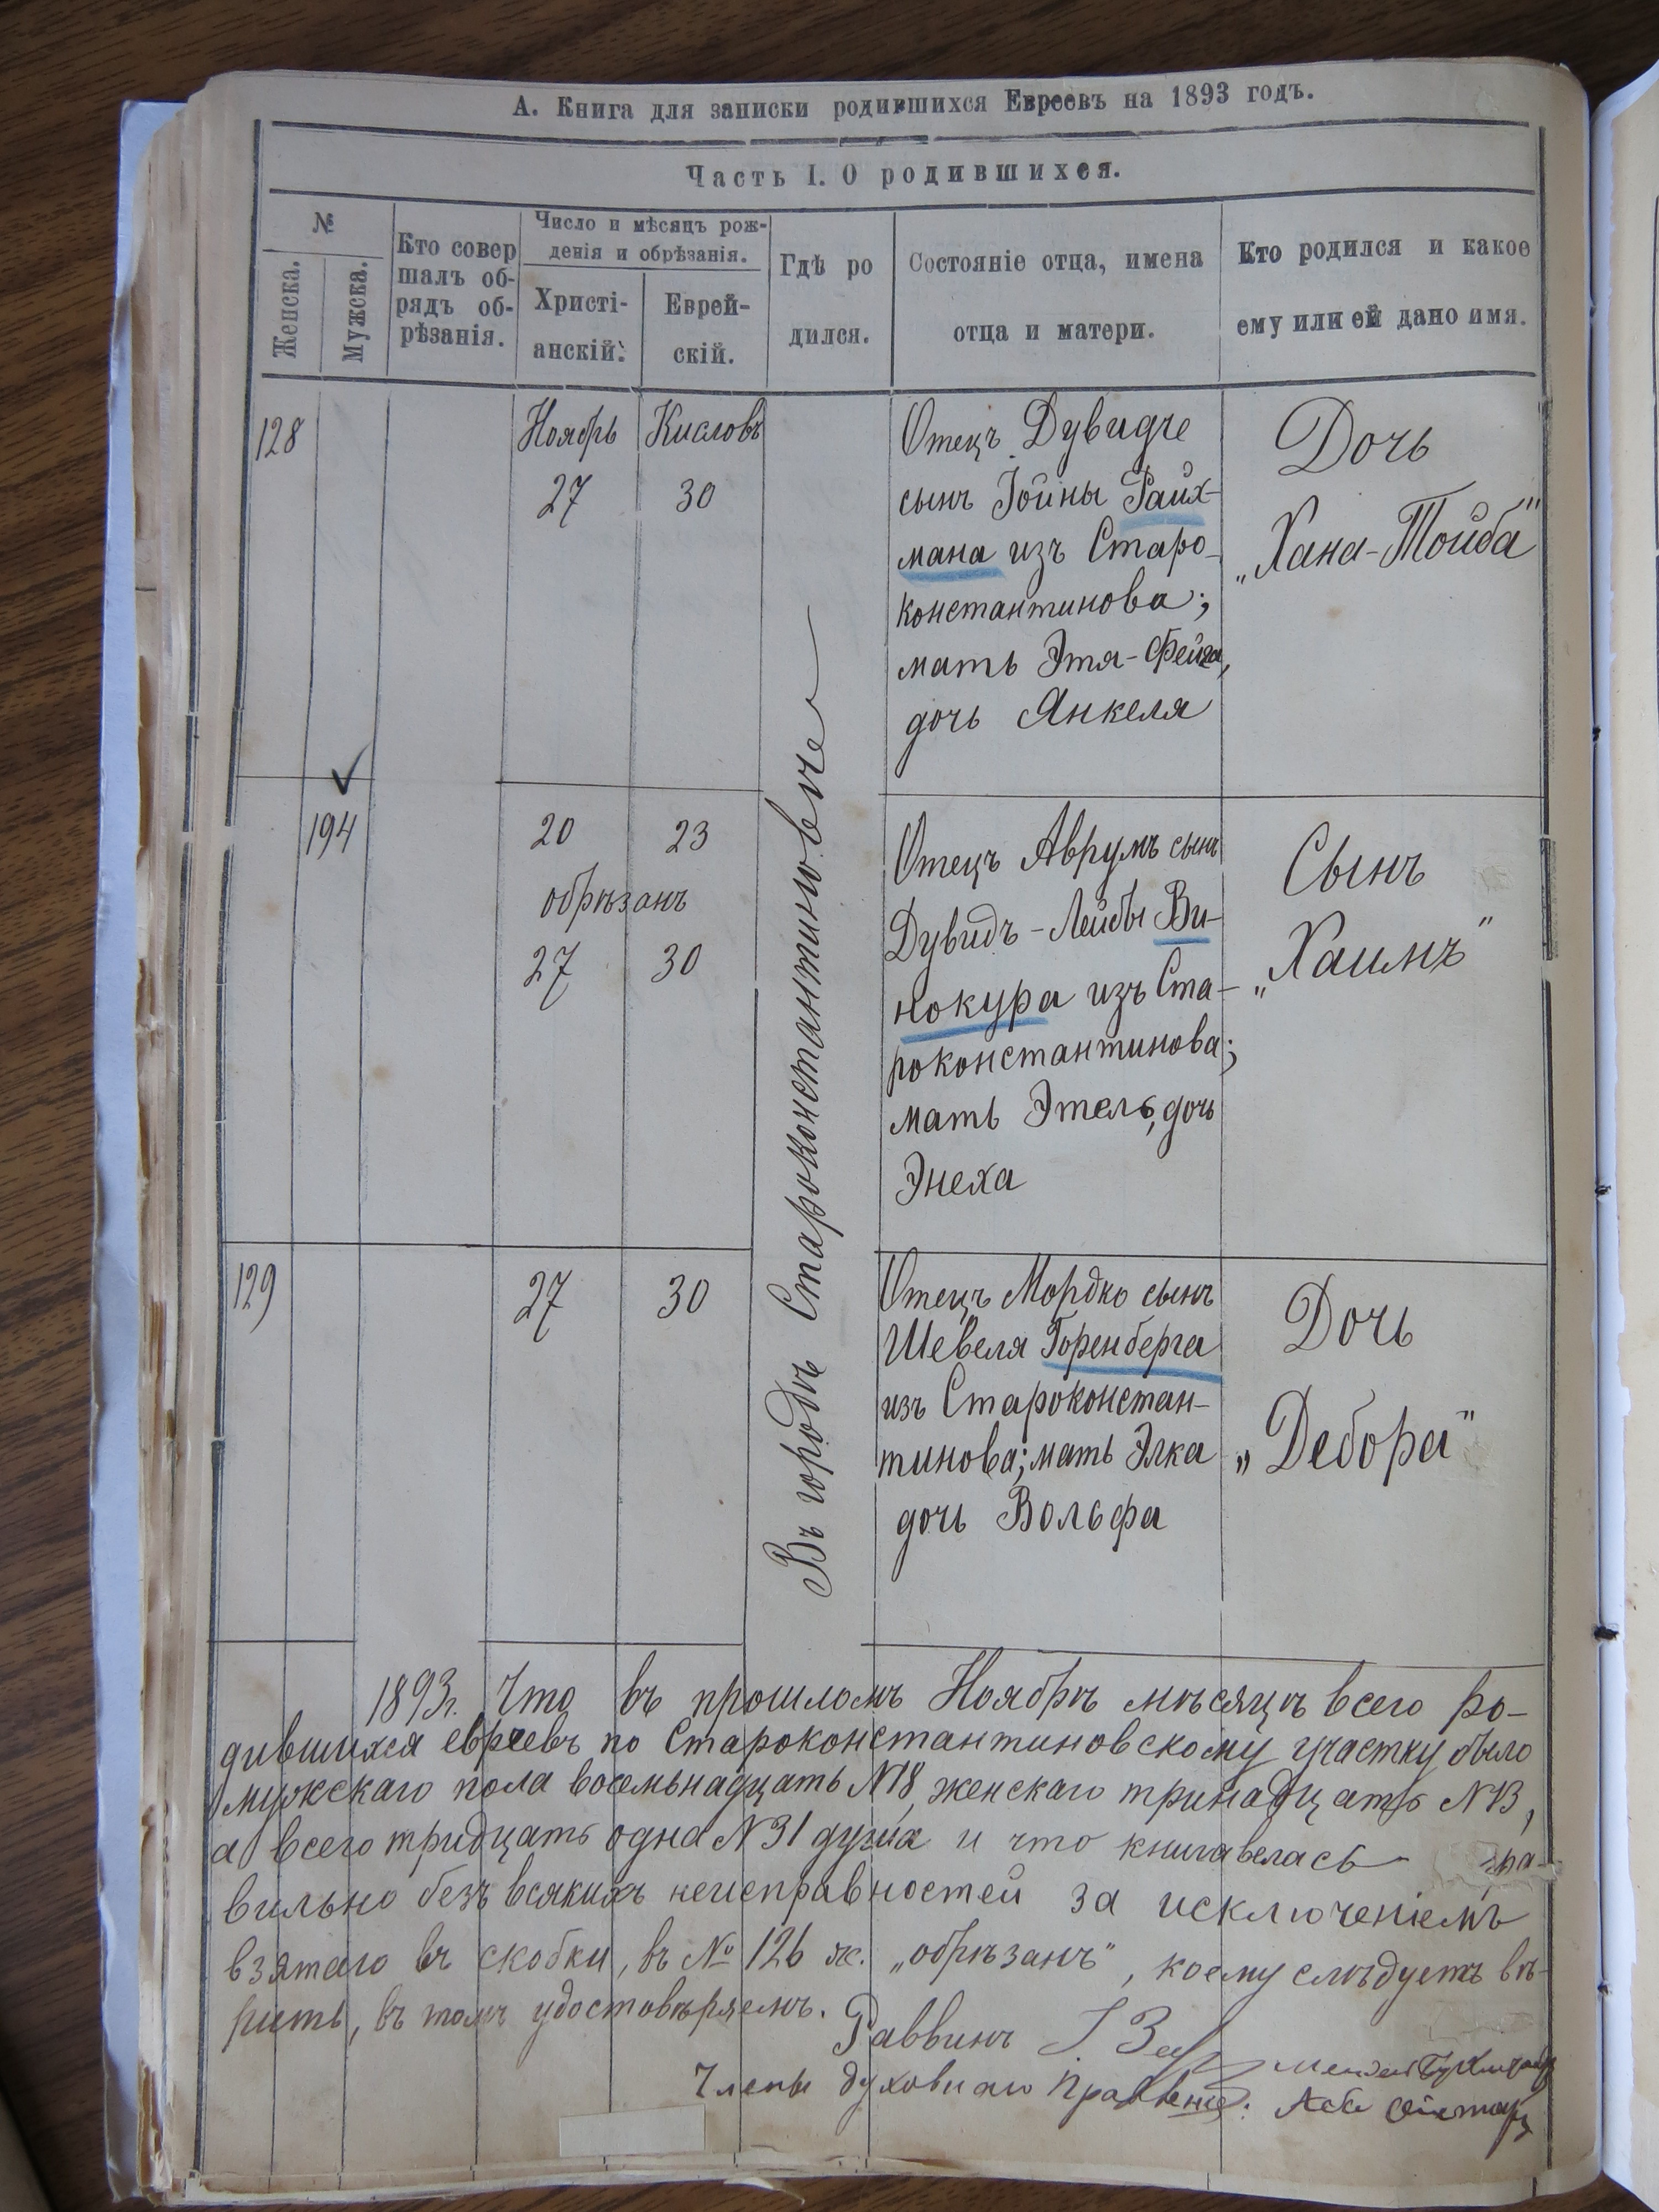 А. Книга для записки родившихся Евреевъ на 1893 годъ.
Часть I. О родившихся.
№
Женска.
Мужска.
Кто совер
шалъ об-
рядъ об-
рѣзанія.
Число и мѣсяцъ рож-
денія и обрѣзанія.
Христі-
анскій.
Еврей-
скій.
Гдѣ ро
дился.
Состояніе отца, имена
отца и матери.
Кто родился и какое
ему или ей дано имя.
128
Ноябрь
27
Кисловъ
30
Въ городѣ Староконстантиновѣ
Отецъ Дувидче
сынъ Іойны Райх-
мана изъ Старо-
константинова;
мать Этя-Фейга,
дочь Янкеля
Дочь
„Хана-Тойба"
194
20 23
обрѣзанъ
27 30
Отецъ Аврумъ сынъ
Дувидъ-Лейбы Ви-
нокура изъ Ста-
роконстантинова;
мать Этель, дочь
Энеха
Сынъ
„Хаимъ"
129
27 30
Отецъ Мордко сынъ
Шевеля Горенберга
изъ Староконстан-
тинова; мать Элка
дочь Вольфа
Дочь
„Дебора"
1893г. Что въ прошломъ Ноябрѣ мѣсяцѣ всего ро-
дившихся евреевъ по Староконстантиновскому участку было
мужскаго пола восемьнадцать №18, женскаго тринадцать №13,
а всего тридцать одна №31 душа и что книга велась пра-
вильно безъ всякихъ неисправностей за исключеніемъ
взятаго въ скобки, въ № 126 ж. „обрѣзанъ", коему слѣдуетъ вѣ-
рить, въ томъ удостовѣряемъ.
Раввинъ
Члены духовнаго Правленія: